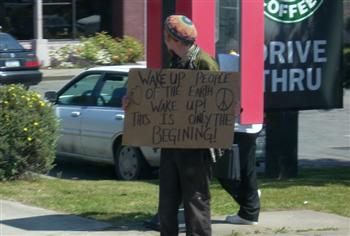 COFFEE
DRIVE
THRU
WAKE UP PEOPLE
OF THE EARTH
WAKE UP!
THIS IS ONLY THE
BEGINING!